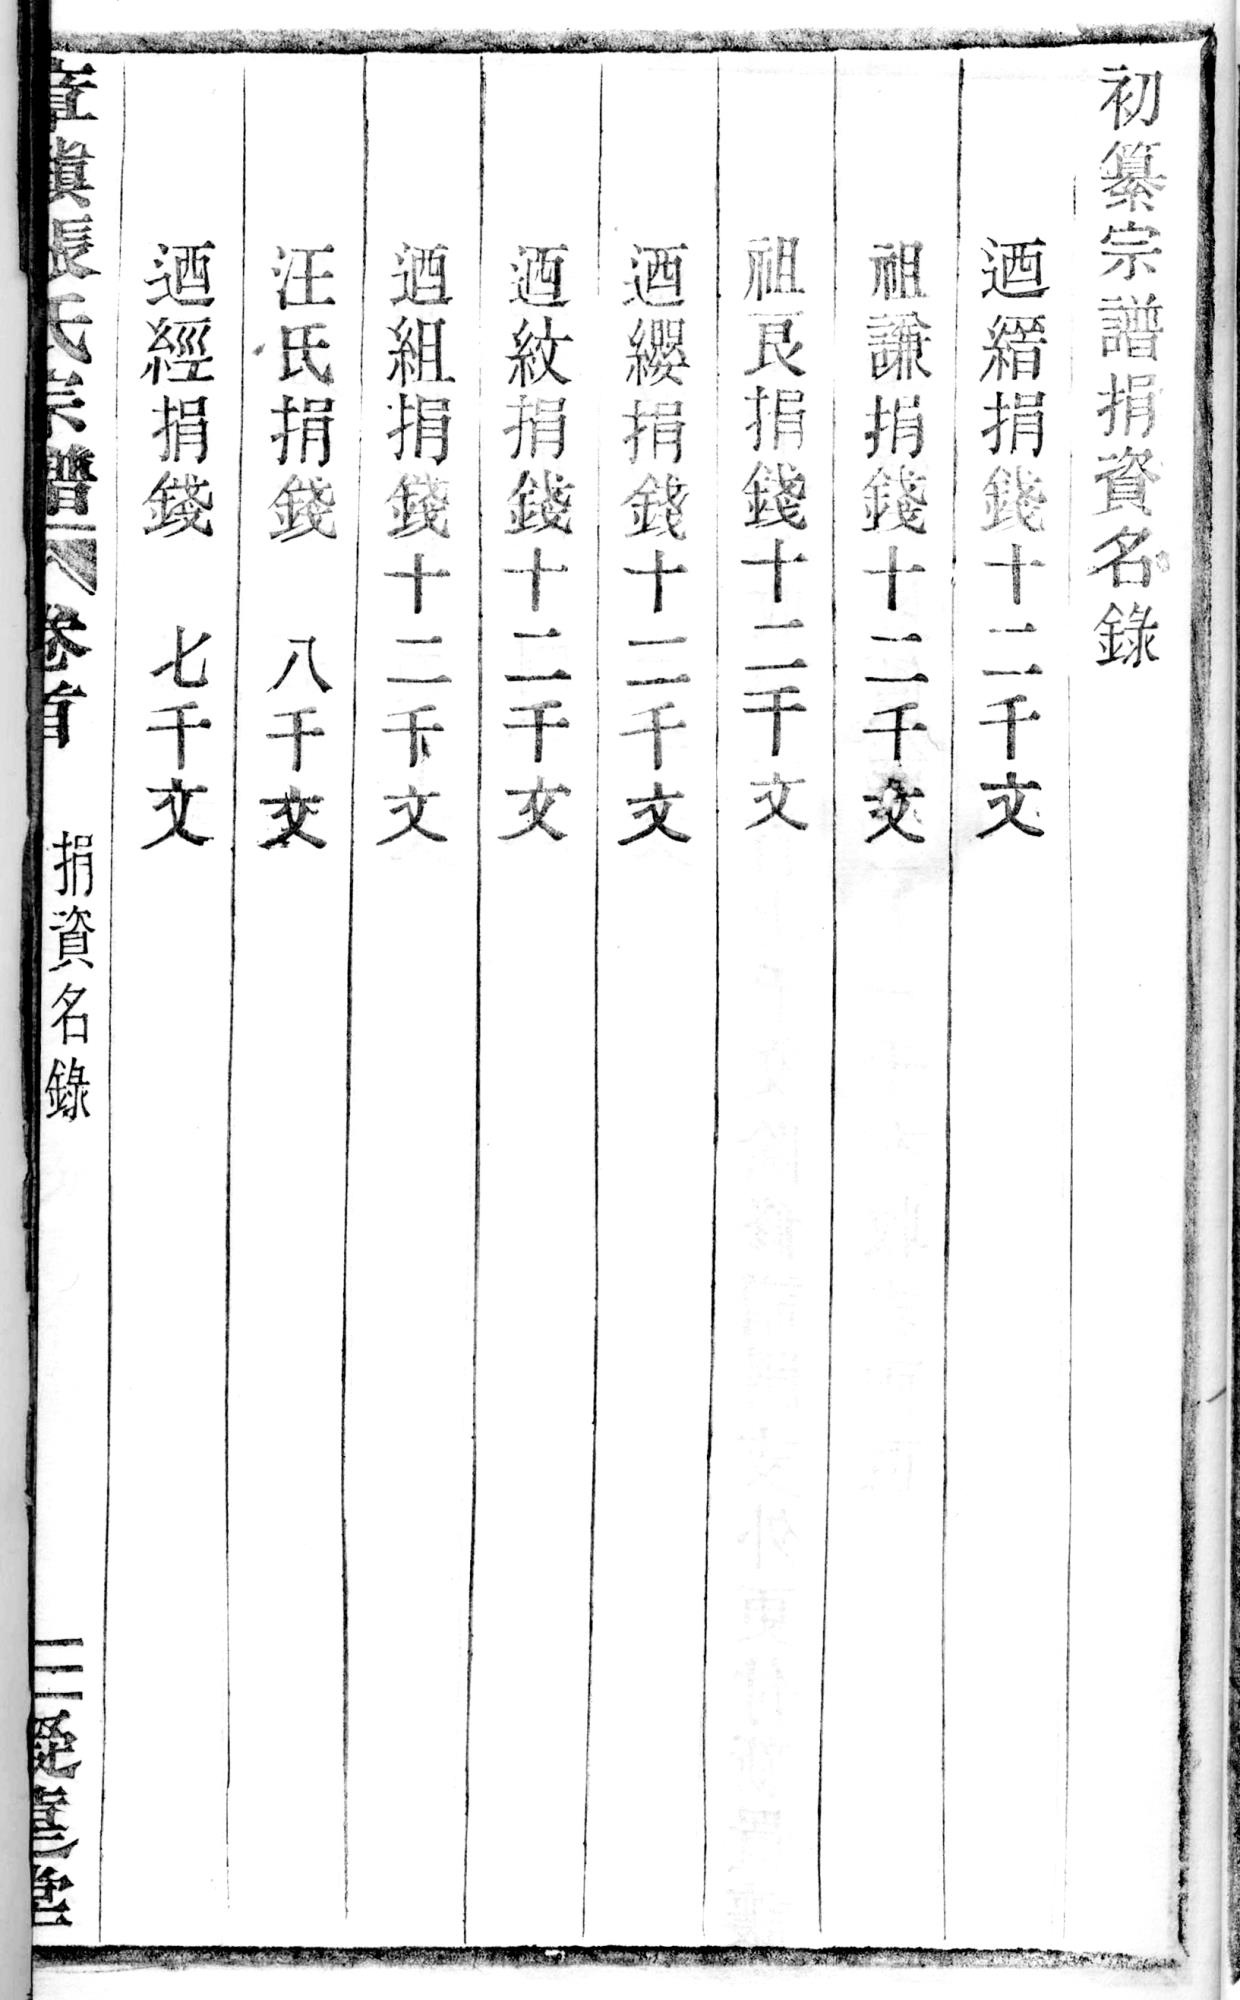 初纂宗譜捐資名錄
迺縉捐錢十二千文
祖謙捐錢十二千文
祖良捐錢十二千文
迺纓捐錢十二千文
迺紋捐錢十二千文
迺組捐錢十二千文
汪氏捐錢 八千文
迺經捐錢 七千文
張氏宗譜 卷首 捐資名錄 三 堂